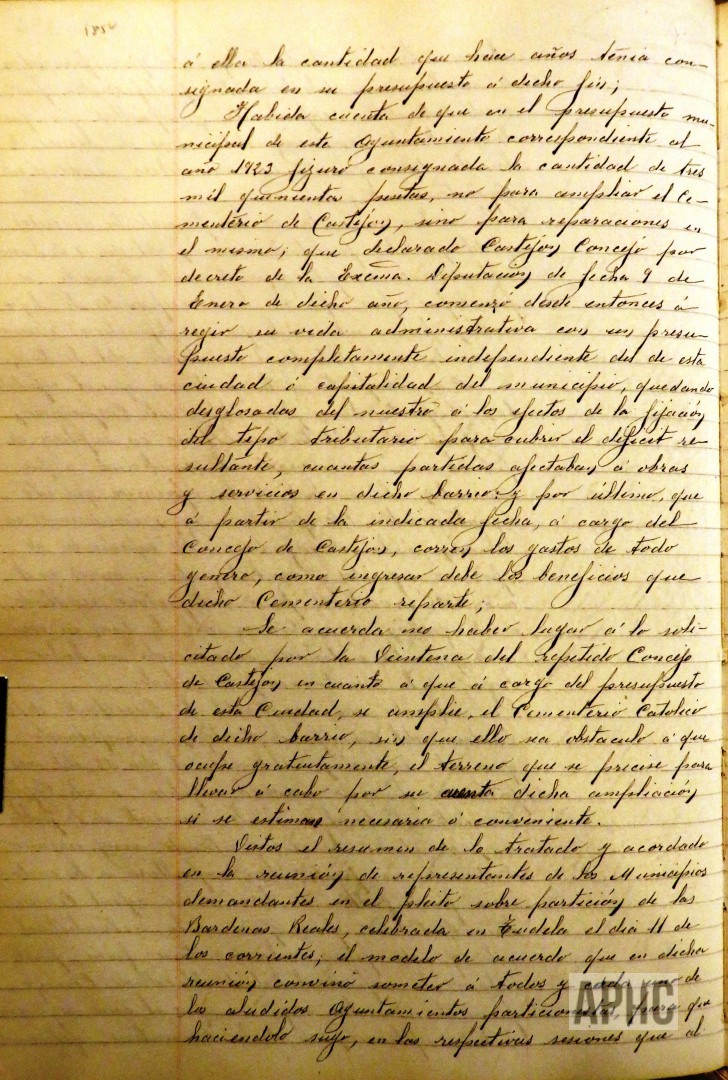 185
á ella la cantidad que hace años tenia con-
signada en su presupuesto á dicho fin;
Habida cuenta de que en el presupuesto mu-
nicipal de este Ayuntamiento correspondiente al
año 1923 figuró consignada la cantidad de tres
mil quinienta pesetas, no para ampliar el Ce-
menterio de Castejon, sino para reparaciones en
el mismo; que declarado Castejon Concejo por
decreto de la Excma. Diputación de fecha 9 de
Enero de dicho año, comenzo desde entonces á
regir su vida administrativa con un presu-
puesto completamente independiente del de esta
ciudad ó capitalidad del municipio, quedando
desglosadas del nuestro á los efectos de la fijación
del tipo tributario para cubrir el deficit re-
sultante, cuantas partidas afectaban á obras
y servicios en dicho barrio; y por último, que
á partir de la indicada fecha, á cargo del
Concejo de Castejon, corren los gastos de todo
genero, como ingresar debe los beneficios que
dicho Cementerio reparte;
Se acuerda no haber lugar á lo soli-
citado por la Veintena del repetido Concejo
de Castejon en cuanto á que á cargo del presupuesto
de esta Ciudad, se amplie, el Cementerio Catolico
de dicho barrio, sin que ello sea obstaculo á que
ocupe gratuitamente, el terreno que se precise para
llevar á cabo por su cuenta dicha ampliación
si se estiman necesaria ó conveniente.
Vistos el resumen de lo tratado y acordado
en la reunión de representantes de los Municipios
demandantes en el pleito sobre partición de las
Bardenas Reales, celebrada en Tudela el dia 11 de
los corrientes; el modelo de acuerdo que en dicha
reunión convino someter á todos y cada uno de
los aludidos Ayuntamientos particionistas, para que
haciendolo suyo, en las respectivas sesiones que al
ARVC